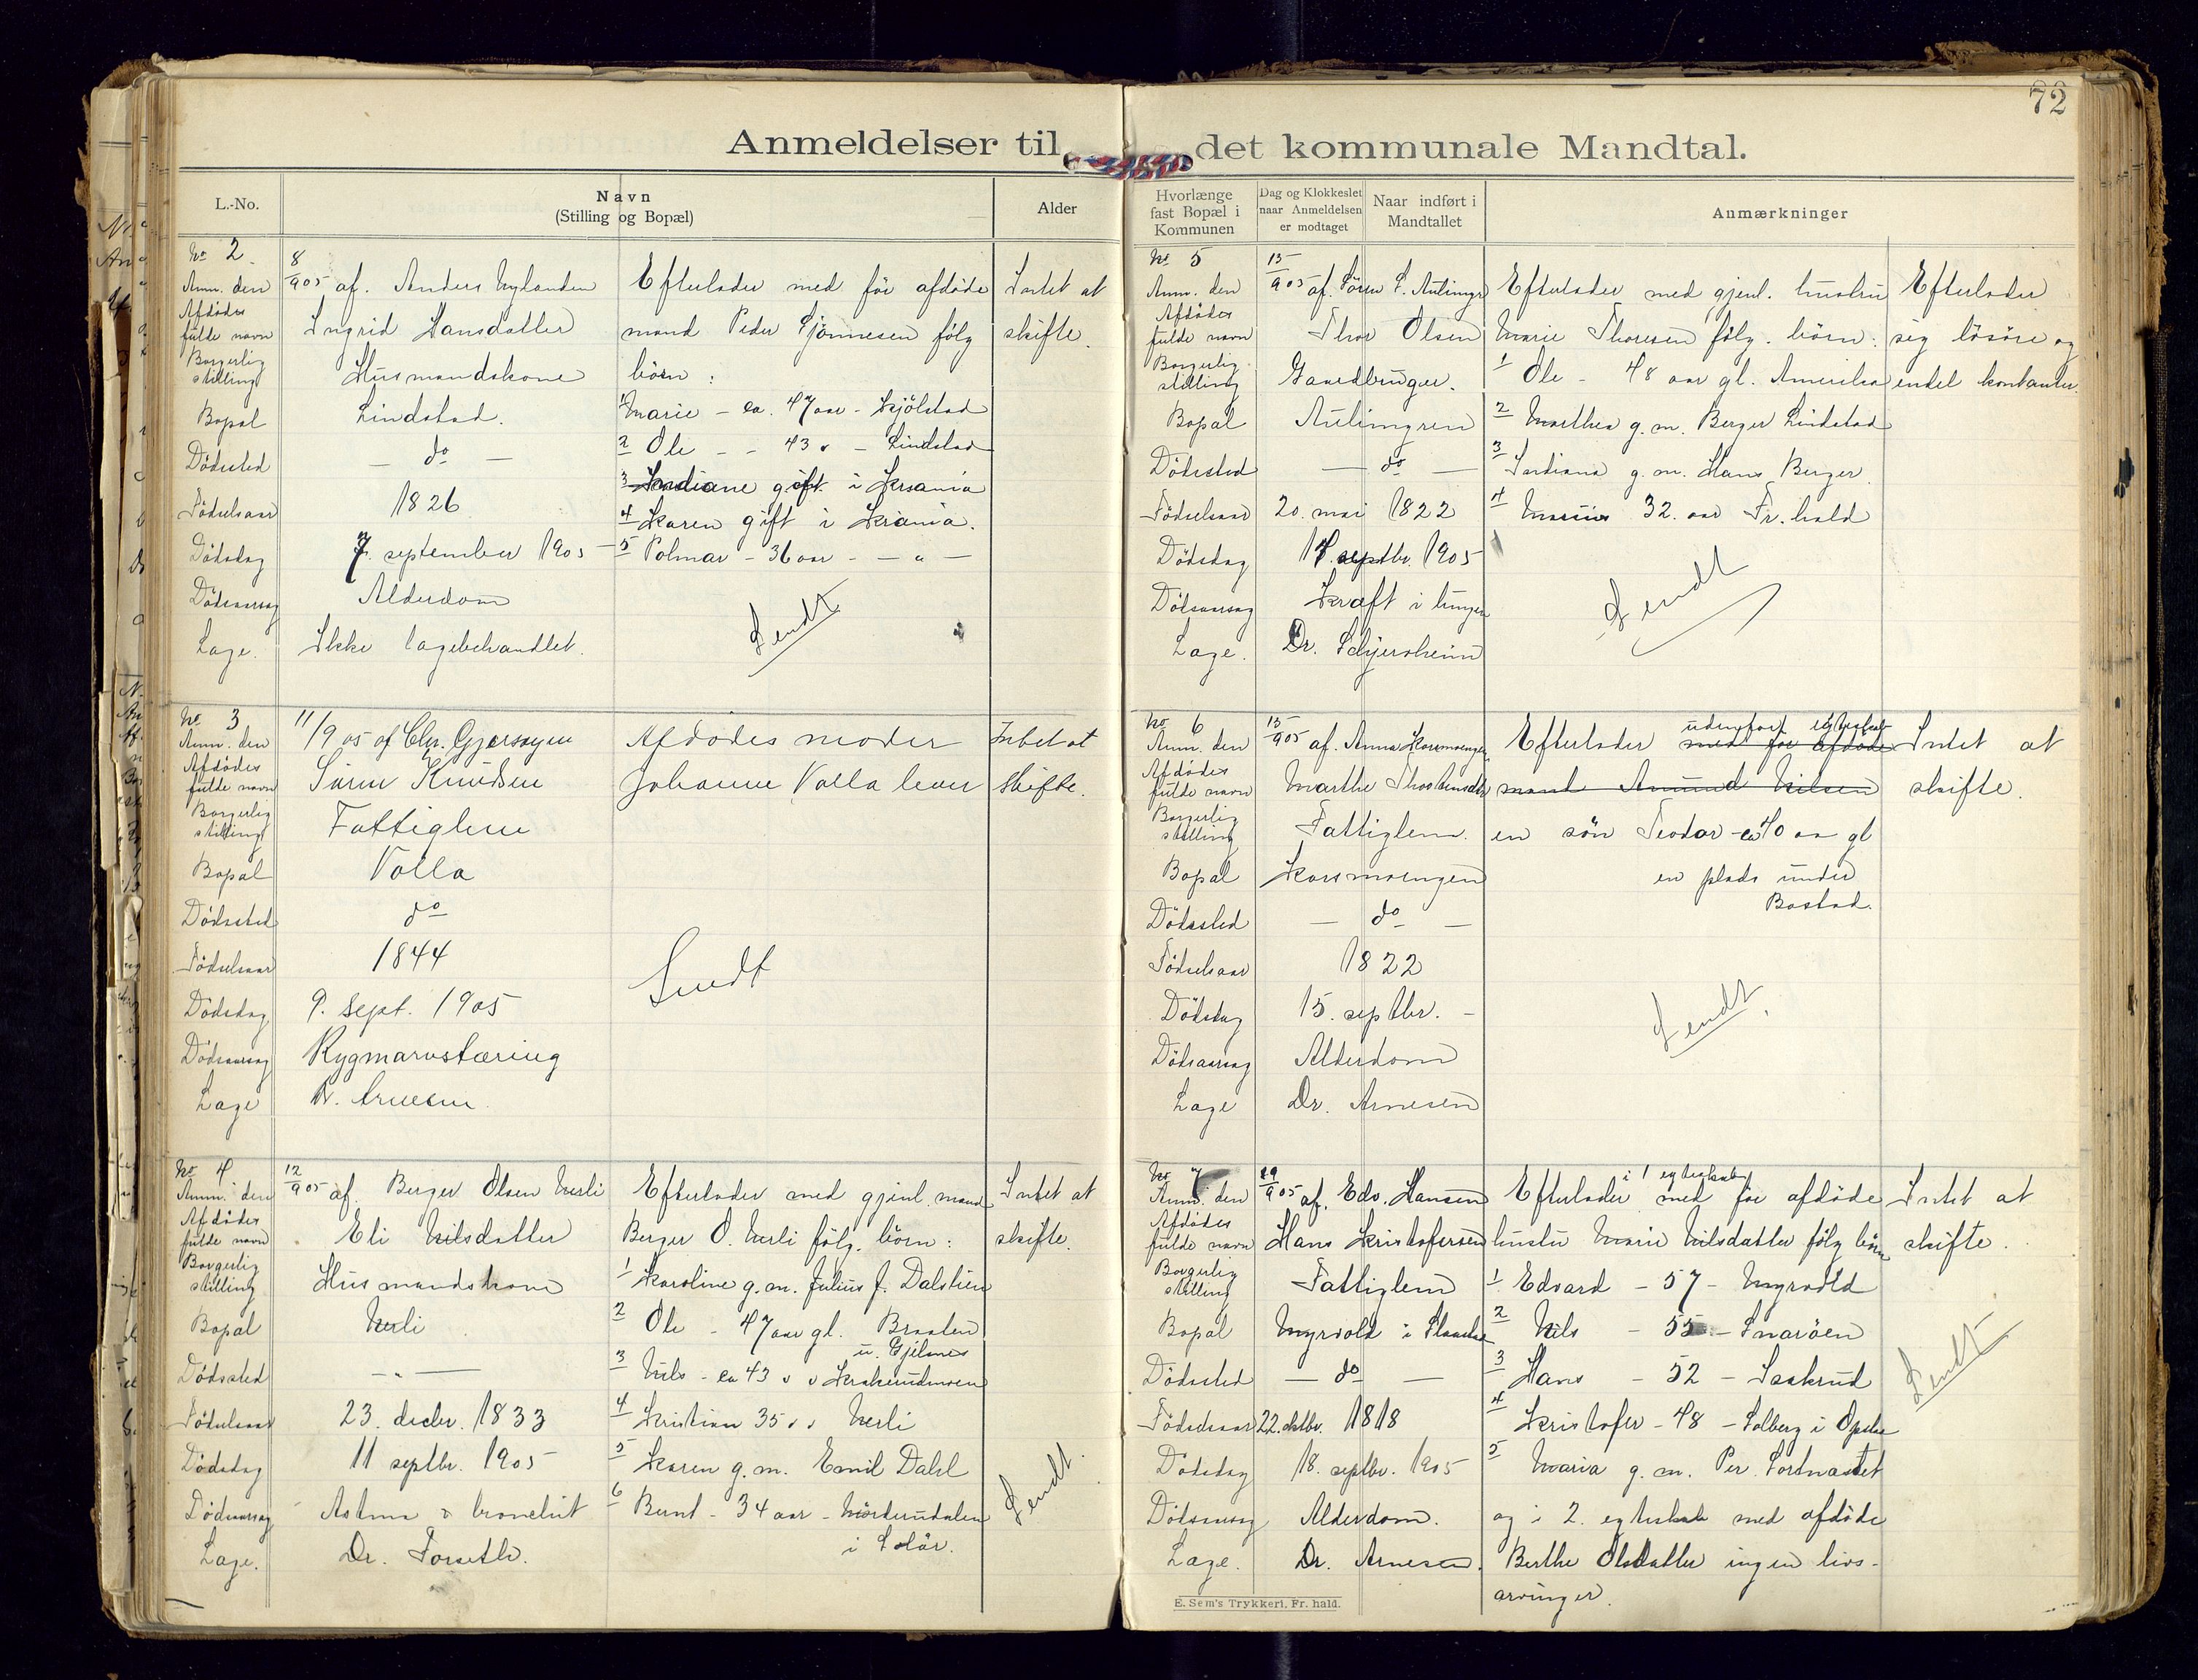 72
Anmeldelser til det kommunale Mandtal.
L.-No.
Navn
(Stilling og Bopæl)
Alder
Hvorlænge
fast Bopæl i
Kommunen
Dag og Klokkeslet
naar Anmeldelsen
er modtaget
Naar indført i
Mandtallet
Anmærkninger
No 2.
Anm. den 8/9 05 af. Anders Nylænden
Afdødes
fulde navn Ingrid Hansdatter
Borgerlig
stilling Husmandskone
Bopæl Lindstad.
Dödssted — do —
Födselsaar 1826
Dödsdag 7. september 1905
Dödsaarsag Alderdom
Læge. Ikke lægebehandlet.
Efterlader med før afdøde
mand Peder Gjønnesen følg
børn:
1 Marie - ca. 47 aar - Kjölstad
2 Ole - - 43 " - Lindstad
3 gift i Krania
4 Karen gift i Krania.
5 Polmar - 36 aar - - " -
Sendt
Intet at
skifte.
No 3
Anm. den 11/9 05 af Chr. Gjersøyen
Afdödes
fulde navn Sörен Knudsen
Borgerlig
stilling Fattiglem
Bopæl Volla
Dödssted do
Födselsaar 1844
Dödsdag 9. sept. 1905
Dödsaarsag Rygmarvstæring
Læge Dr. Arnesen
Afdødes moder
Johanne Volla lever
Sendt
Intet at
skifte.
No 4
Anm. den 12/9 05 af. Berger Olsen Nerli
Afdödes
fulde navn Eli Nilsdatter
Borgerlig
stilling Husmandskone
Bopæl Nerli
Dödssted - " -
Födselsaar 23. decbr. 1833
Dödsdag 11 septbr. 1905
Dödsaarsag Astma & bronchit
Læge. Dr. Forseth.
Efterlader med gjenl. mand
Berger O. Nerli følg. børn:
1 Karoline g. m. Julius J. Dalstien
2 Ole - 47 aar gl. Braaten
u. Gjelmes
3 Nils - ca 43 " "
4 Kristian 35 " " Nerli
5 Karen g. m. Emil Dahl
6 Bernt - 34 aar -
i Solör.
Intet at
skifte.
Sendt.
No 5
Anm. den 15/9 05 af. Sören S. Aulimgr
Afdödes
fulde navn Thor Olsen
Borgerlig
stilling Gaardbruger.
Bopæl Aulimgren
Dödssted — do —
Födselsaar 20. mai 1822
Dödsdag 14. septbr. 1905
Dödsaarsag Kræft i lungen
Læge. Dr. Schjersheim
Efterlader med gjenl. hustru
Marie Thoresen følg. børn:
1 Ole - 48 aar gl. Amerika
2 Marthea g. m. Berger Lindstad
3 g. m. Hans Berger.
4 32. aar Fr.hald
Sendt
Efterlader
sig lösöre og
endel kontanter.
No 6
Anm. den 15/9 05 af. Anna Korsmoengen
Afdödes
fulde navn Marthe Thorstensdtr
Borgerlig
stilling Fattiglem.
Bopæl Korsmoengen
Dödssted — do —
Födselsaar 1822
Dödsdag 15. septbr. -
Dödsaarsag Alderdom
Læge Dr. Arnesen
udenfor egteskab
Efterlader med før afdøde
mand Amund Nilsen
en søn Teodor - ca 40 aar gl
en plads under
Bostad.
Sendt.
Intet at
skifte.
No 7
Anm. den 19/9 05 af. Edv. Hansen
Afdödes
fulde navn Hans Kristofersen
Borgerlig
stilling Fattiglem
Bopæl Myrvold i
Dödssted — do —
Födselsaar 22. oktbr. 1818
Dödsdag 18. septbr. 1905
Dödsaarsag Alderdom.
Læge. Dr. Arnesen.
i 1 egteskab
Efterlader med før afdøde
hustru Marie Nilsdatter følg børn
1 Edvard - 57 - Myrvold
2 Nils - 55 - Snaröen
3 Hans - 52 - Saskrud
4 Kristofer - 48 - Solberg i
5 Maria g. m. Per. Sortnæstet
og i 2. egteskab med afdøde
Berthe Olsdatter ingen livs-
arvinger.
Intet at
skifte.
Sendt
E. Sem's Trykkeri, Fr. hald.